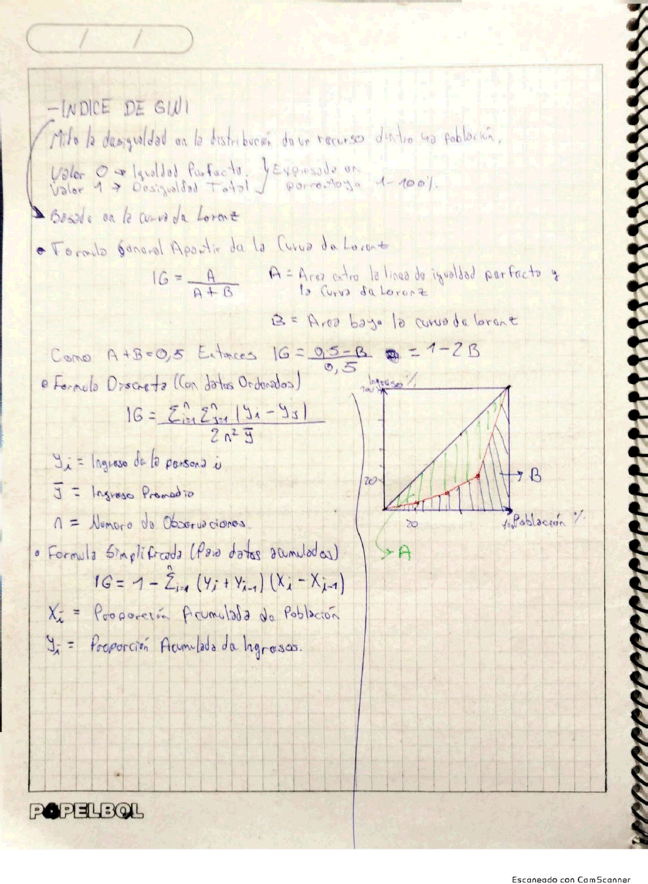 - INDICE DE GINI
Mide la desigualdad en la distribución de un recurso dentro una población.
Valor 0 → Igualdad Perfecta. } Expresado en
Valor 1 → Desigualdad Total } porcentaje 1-100%.
Basado en la curva de Lorenz
• Formula General Apartir de la Curva de Lorenz
IG = A / (A + B)
A = Area entre la linea de igualdad perfecta y
la Curva de Lorenz
B = Area bajo la curva de lorenz
Como A + B = 0,5 Entonces IG = (0,5 - B) / 0,5 = 1 - 2B
• Formula Discreta (Con datos Ordenados)
IG = Σⁿi=1 Σⁿj=1 |yi - yj| / 2n² ȳ
yi = Ingreso de la persona i
ȳ = Ingreso Promedio
n = Numero de Observaciones.
Ingreso %
100%
20
20
100
Población %
B
A
• Formula Simplificada (Para datos acumulados)
IG = 1 - Σⁿi=1 (Yi + Yi-1) (Xi - Xi-1)
Xi = Proporción Acumulada de Población
Yi = Proporción Acumulada de Ingresos.
POPELBOL
Escaneado con CamScanner